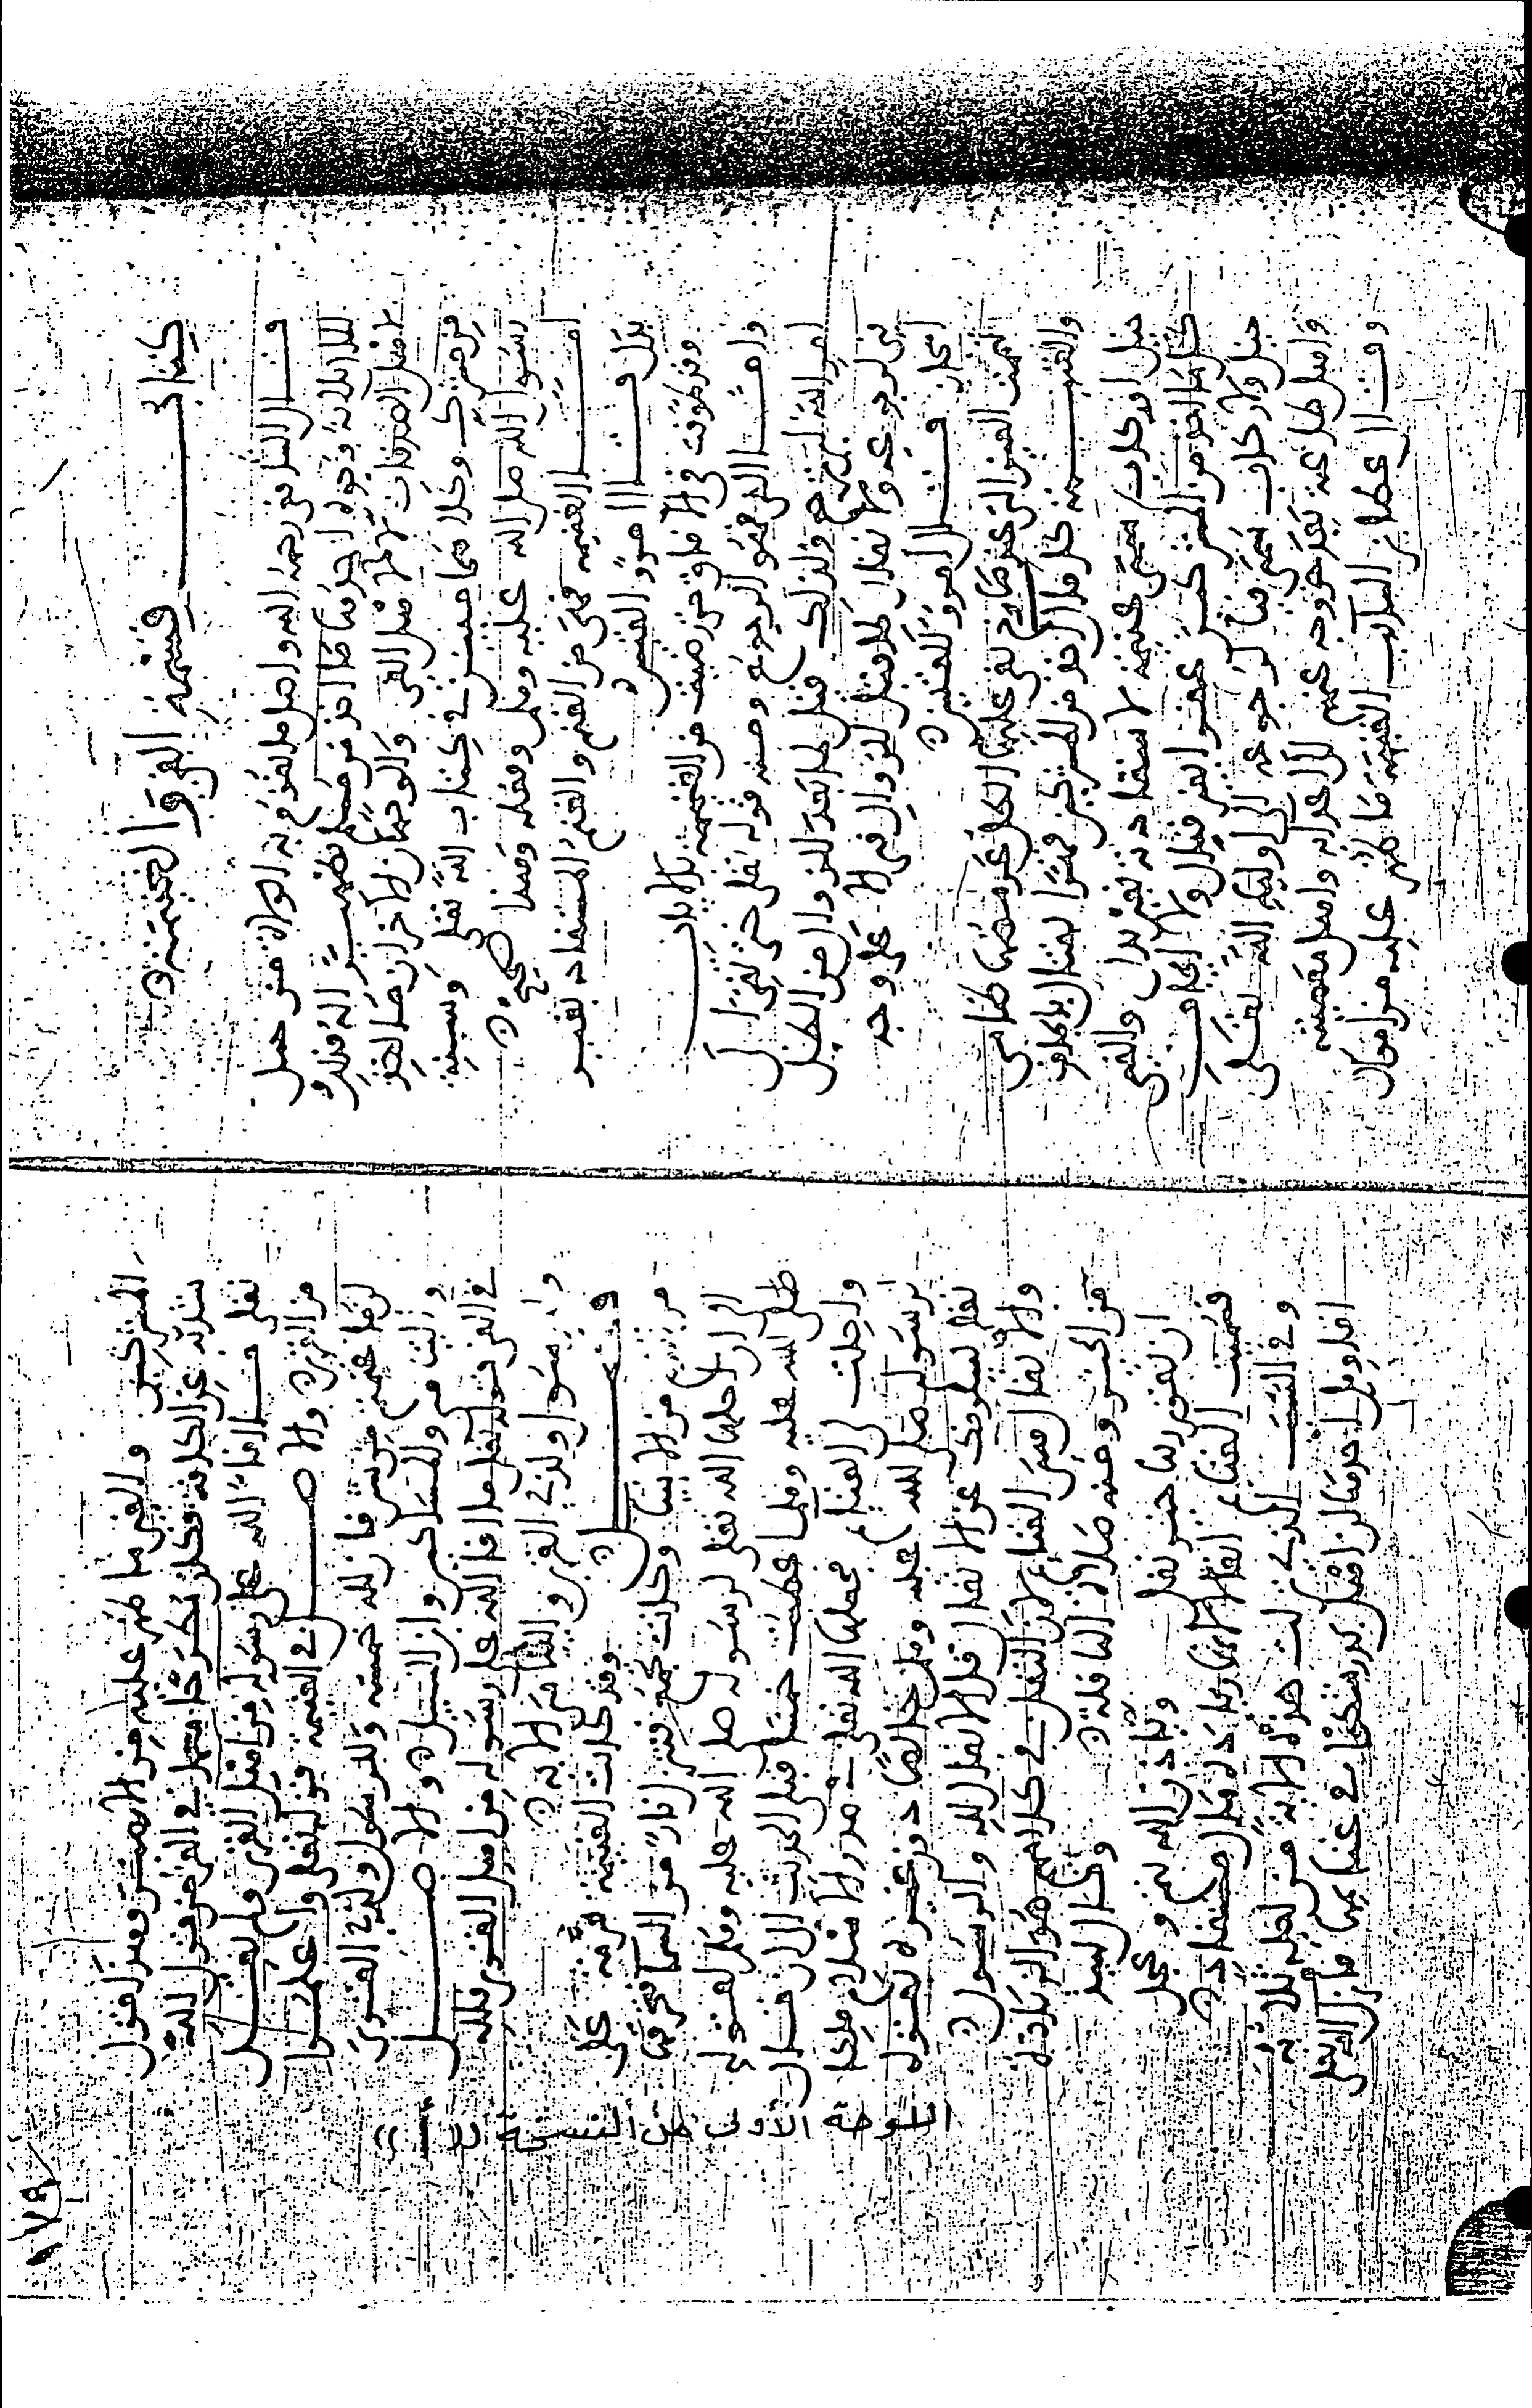 كتاب قسمة الفيء والغنيمة
قال الشافعي رحمه الله واصل ما يقوم به الولاة من جمل
المال ثلاثة وجوه احدها ما اخذ من مسلم تطهيرا له فذلك
لاهل الصدقات لا لاهل الفي والوجهان الاخران ما اخذ
من مشرك وكلاهما مبين في كتاب الله تعالى وسنة
رسول الله صلى الله عليه وسلم وفعله وهذا صحيح
اما الغنيمة فهي من الغنم والغنم المستفاد بغير
بدل وقال امرؤ القيس
وقد طوفت في الافاق حتى رضيت من الغنيمة بالاياب
واما الفي فهو الرجوع ومنه قوله تعالى حتى تفي الى
امر الله اي ترجع ولذلك قيل لما بعد الزوال من الظل
في لرجوعه ولا يقال لما قبل الزوال في الا على وجه
المجاز وقال امرؤ القيس
تيممت العين التي عند ضارج يفي عليها الظل عرمضها طامي
والغنيمة كل مال اخذ من المشركين قهرا بقتال بايجاف
خيل او ركاب سمي غنيمة لاستفادته بغير بدل والفي
كل مال اخذ من المشركين عفوا بغير قتال ولا ايجاف
خيل ولا ركاب سمي فيا لرجوعه الى اوليا الله تعالى
واهل طاعته بعد خروجه عنهم الى اعدائه واهل معصيته
وقال عطا بن السائب الغنيمة ما ظهر عليه من اموال
المشركين والفي ما ظهر عليه من الارضين
شذ به عن الكافة فكان مطرحا والاصل في الفي قول الله
تعالى ما افا الله على رسوله من اهل القرى ولم يقل
من القرى والاصل في الغنيمة قوله تعالى واعلموا
انما غنمتم من شي فان لله خمسه وللرسول ولذي القربى
واليتامى والمساكين وابن السبيل والاصل
في الفي قوله تعالى ما افا الله على رسوله من اهل القرى فلله
وللرسول ولذي القربى واليتامى الاية
فصل وقد كانت الغنيمة محرمة على
من الانبيا وكانت تجمع فتنزل نار من السما فتحرقها
الى ان احلها الله تعالى لرسوله صلى الله عليه وسلم لقوله
صلى الله عليه وسلم اعطيت خمسا قبلي الى ان قال
واحلت لي الغنائم فجعلها الله تعالى في صدر الاسلام ملكا
لرسوله صلى الله عليه وسلم خالصا دون غيره لقوله
تعالى يسالونك عن الانفال قل الانفال لله والرسول
والانفال هي الغنائم لان النفل في كلامهم هو الزيادة
من الخير ومنه صلاة النافلة وقال لبيد
ان تقوى ربنا خير نفل وباذن الله ريثي وعجل
فسميت الغنائم انفالا لانها زيادة مال مستفاد
وفي السبب الذي نزلت هذه الاية من اجله ثلاثة
اقاويل احدها ان اهل بدر شكوا في غنائمها فانزل الله تعالى
اللوحة الأولى من النسخة «أ»
١٧٩